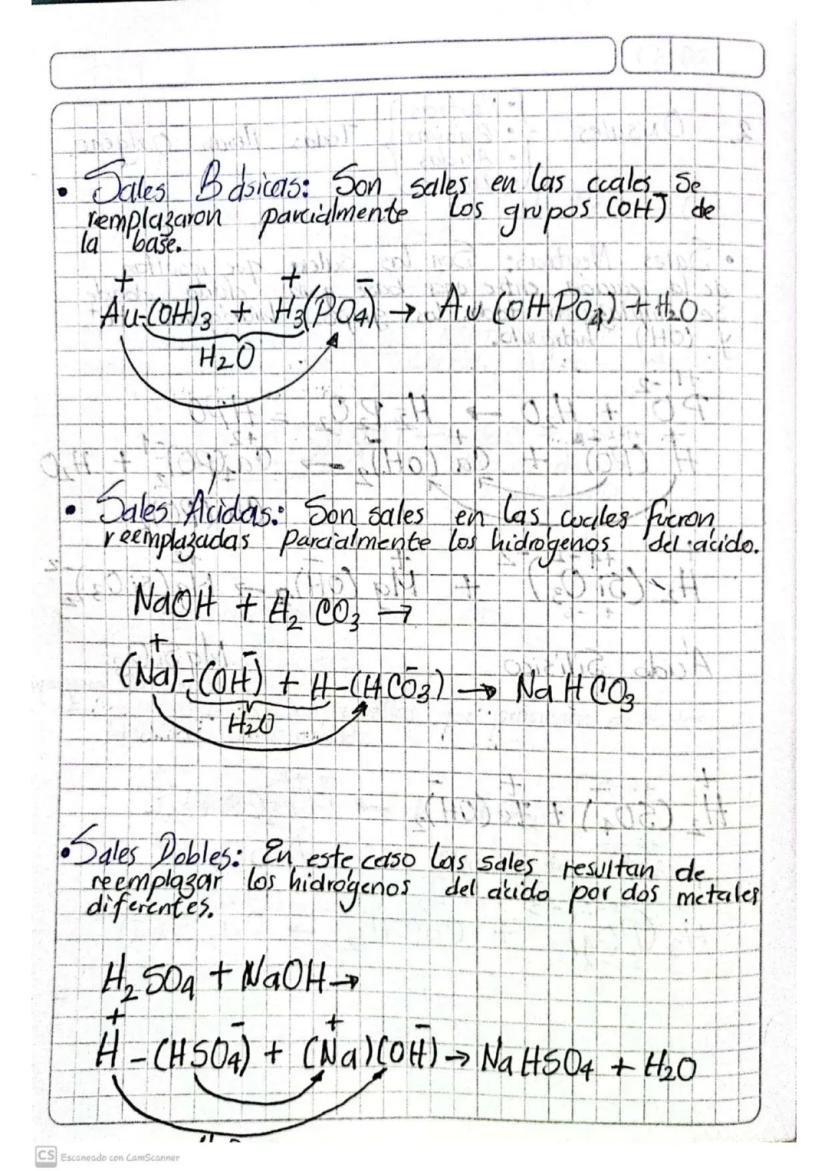 • Sales Básicas: Son sales en las cuales se
remplazaron parcialmente los grupos (OH)⁻ de
la base.
+ − + −
Au-(OH)₃ + H₃(PO₄) → Au (OH PO₄) + H₂O
H₂O
• Sales Acidas: Son sales en las cuales fueron
reemplazadas parcialmente los hidrógenos del ácido.
NaOH + H₂ CO₃ →
+ − −
(Na)-(OH) + H-(HCO₃) → Na H CO₃
H₂O
• Sales Dobles: En este caso las sales resultan de
reemplazar los hidrógenos del ácido por dos metales
diferentes.
H₂SO₄ + NaOH →
+ − + −
H-(HSO₄) + (Na)(OH) → NaHSO₄ + H₂O
CS Escaneado con CamScanner